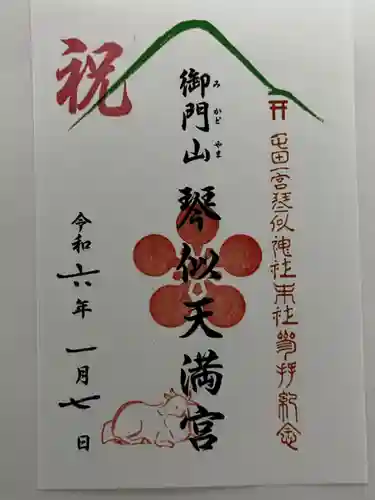 屯田一宮琴似神社末社参拝紀念
御門山 琴似天満宮
みかどやま
祝
令和六年一月七日